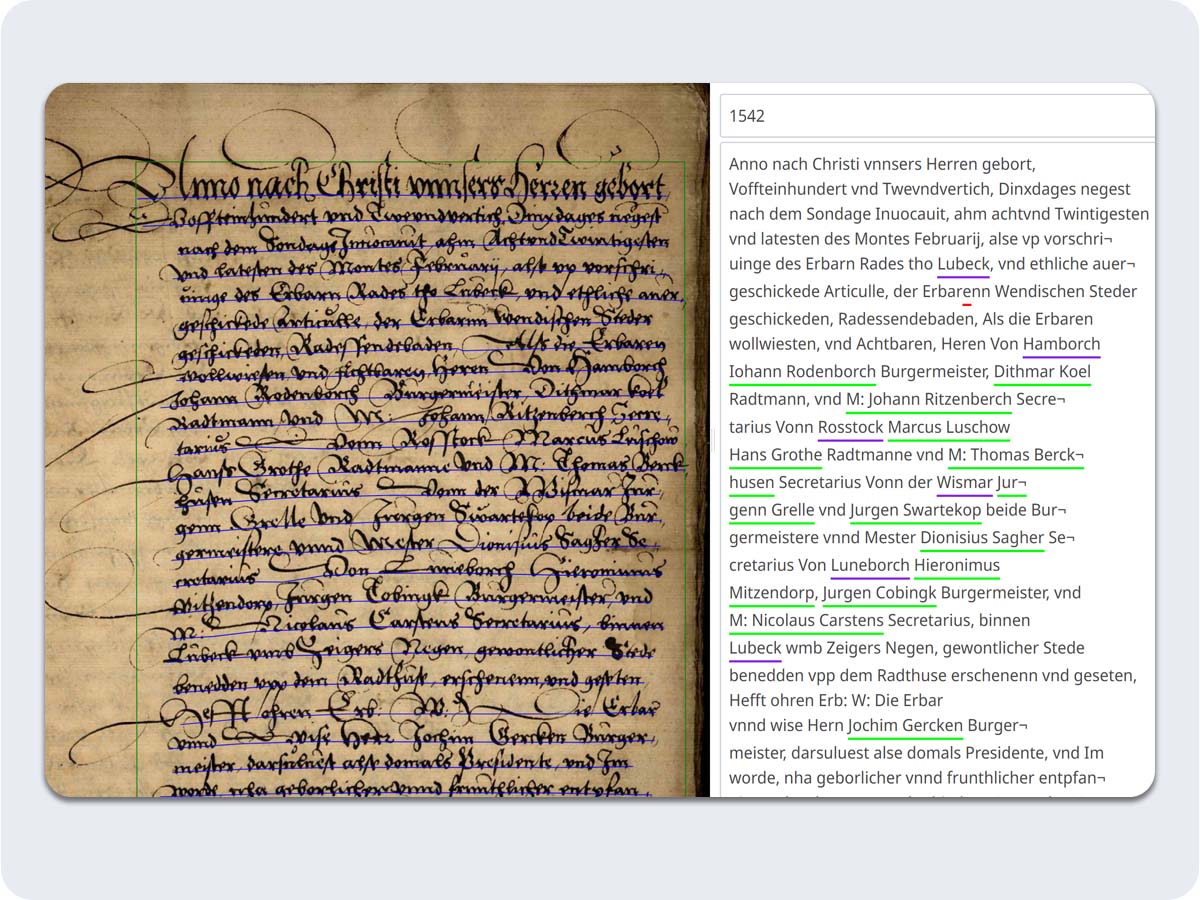 Anno nach Christi vnnsers Herren gebort,
Voffteinhundert vnd Twevndvertich, Dinxdages negest
nach dem Sondage Inuocauit, ahm Achtvnd Twintigesten
vnd latesten des Montes Februarij, alse vp vorschri¬
uinge des Erbarn Rades tho Lubeck, vnd ethliche auer¬
geschickede Articulle, der Erbarnn Wendischen Steder
geschickeden, Radessendebaden, Alse die Erbaren
wollwiesen vnd Achtbaren, Heren Von Hamborch
Johann Rodenborch Burgermeister, Dithmar Koel
Radtmann vnd M: Johann Ritzenberch Secre¬
tarius Vonn Rosstock Marcus Luschow
Hanss Grothe Radtmanne vnd M: Thomas Berck¬
husen Secretarius Vonn der Wissmar Jur¬
genn Grelle vnd Jurgen Swartekop beide Bur¬
germeistere vnnd Mester Dionisius Sagher Se¬
cretarius Von Luneborch Hieronimus
Witzendorp, Jurgen Tobingk Burgermeister, vnd
M: Nicolaus Carstens Secretarius, binnen
Lubeck vmb Zeigers Negen, gewontlicher Stede
benedden vpp dem Radthuse, erschenenn, vnd geseten
Hefft ohren Erb: W: Die Erbar
vnnd wise Herr Jochim Gercken Burger¬
meister, darsuluest alse domals Presidente, vnd Im
worde, nha geborlicher vnnd frunthlicher entpfan¬
1542
Anno nach Christi vnnsers Herren gebort,
Voffteinhundert vnd Twevndvertich, Dinxdages negest
nach dem Sondage Inuocauit, ahm achtvnd Twintigesten
vnd latesten des Montes Februarij, alse vp vorschri¬
uinge des Erbarn Rades tho Lubeck, vnd ethliche auer¬
geschickede Articulle, der Erbarenn Wendischen Steder
geschickeden, Radessendebaden, Als die Erbaren
wollwiesten, vnd Achtbaren, Heren Von Hamborch
Iohann Rodenborch Burgermeister, Dithmar Koel
Radtmann, vnd M: Johann Ritzenberch Secre¬
tarius Vonn Rosstock Marcus Luschow
Hans Grothe Radtmanne vnd M: Thomas Berck¬
husen Secretarius Vonn der Wismar Jur¬
genn Grelle vnd Jurgen Swartekop beide Bur¬
germeistere vnnd Mester Dionisius Sagher Se¬
cretarius Von Luneborch Hieronimus
Mitzendorp, Jurgen Cobingk Burgermeister, vnd
M: Nicolaus Carstens Secretarius, binnen
Lubeck wmb Zeigers Negen, gewontlicher Stede
benedden vpp dem Radthuse erschenenn vnd geseten,
Hefft ohren Erb: W: Die Erbar
vnnd wise Hern Jochim Gercken Burger¬
meister, darsuluest alse domals Presidente, vnd Im
worde, nha geborlicher vnnd frunthlicher entpfan¬